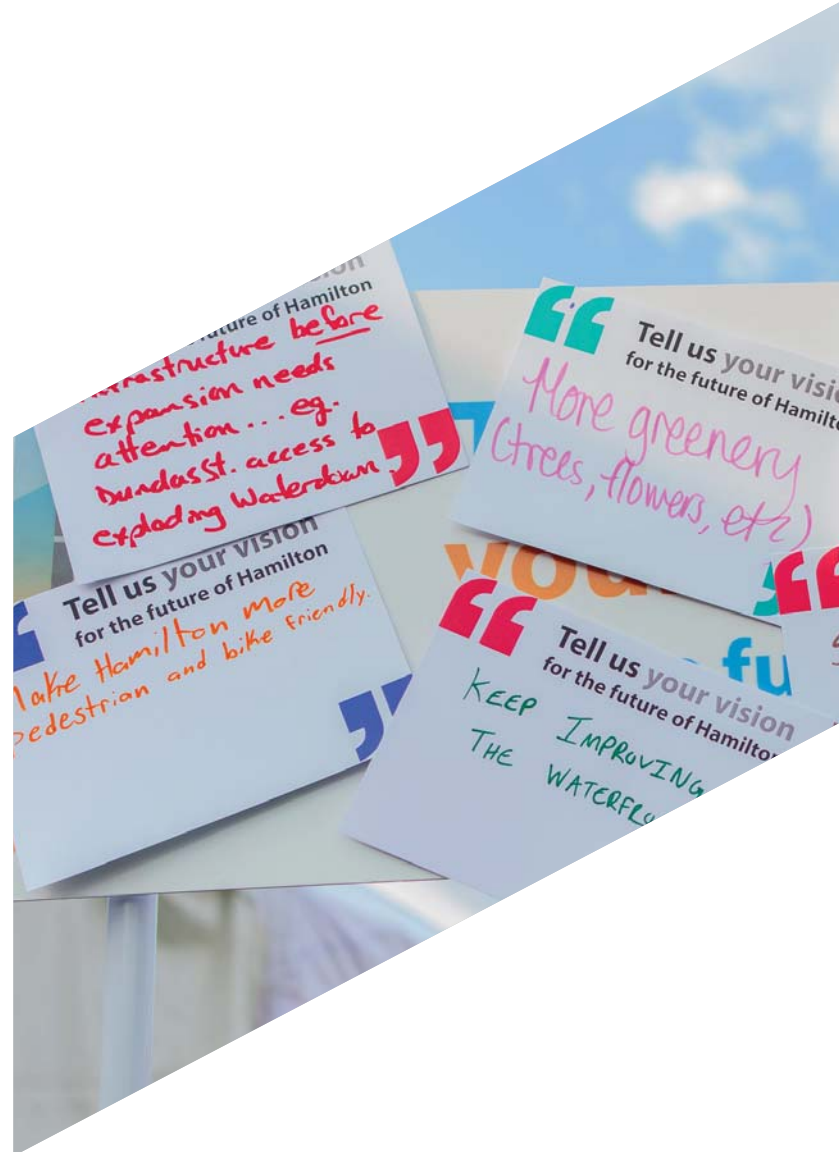 future of Hamilton
infrastructure before
expansion needs
attention... eg.
Dundas St. access to
exploding Waterdown.
Tell us your vision
for the future of Hamilton
More greenery
(trees, flowers, etc)
Tell us your vision
for the future of Hamilton
Make Hamilton more
pedestrian and bike friendly.
Tell us your vision
for the future of Hamilton
KEEP IMPROVING
THE